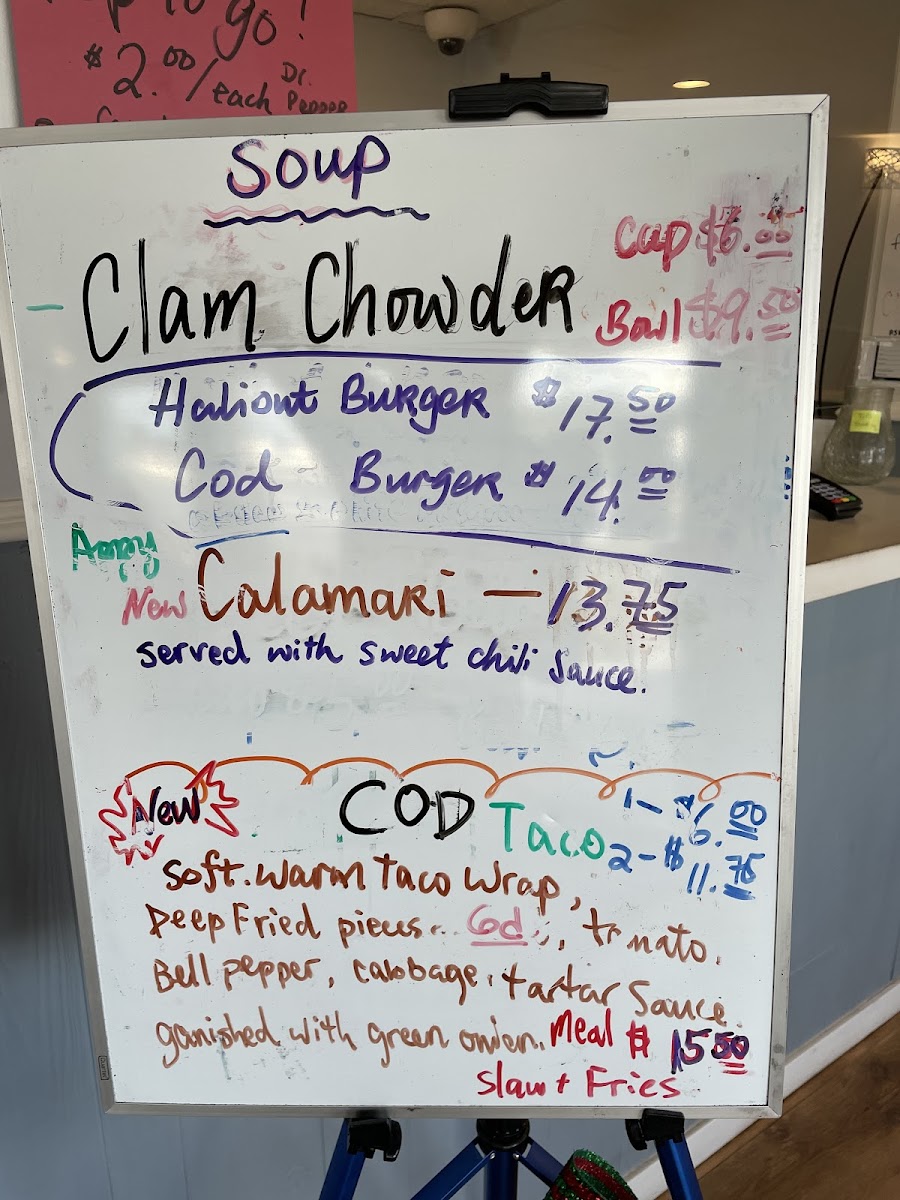 to go!
$2.00/each Dr. Pepper
Soup
Clam Chowder
Cup $6.00
Bowl $9.50
Haliout Burger $17.50
Cod Burger $14.00
Appy
New Calamari — 13.75
served with sweet chili sauce.
New
COD Taco
1 - $6.00
2 - $11.75
soft. warm Taco Wrap,
Deep Fried pieces.. Cod.., tomato,
Bell pepper, cabbage, tartar Sauce.
ganished with green onion. Meal $15.50
Slaw + Fries